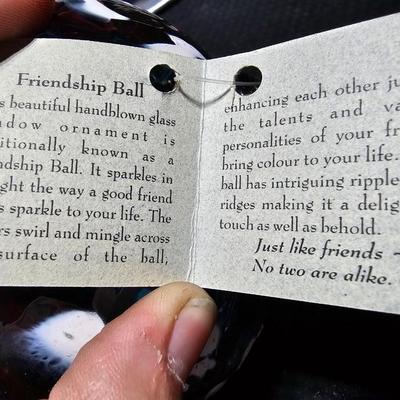 Friendship Ball
s beautiful handblown glass
dow ornament is
itionally known as a
dship Ball. It sparkles in
ght the way a good friend
s sparkle to your life. The
rs swirl and mingle across
surface of the ball,
enhancing each other ju
the talents and va
personalities of your fr
bring colour to your life.
ball has intriguing ripple
ridges making it a delig
touch as well as behold.
Just like friends ~
No two are alike.